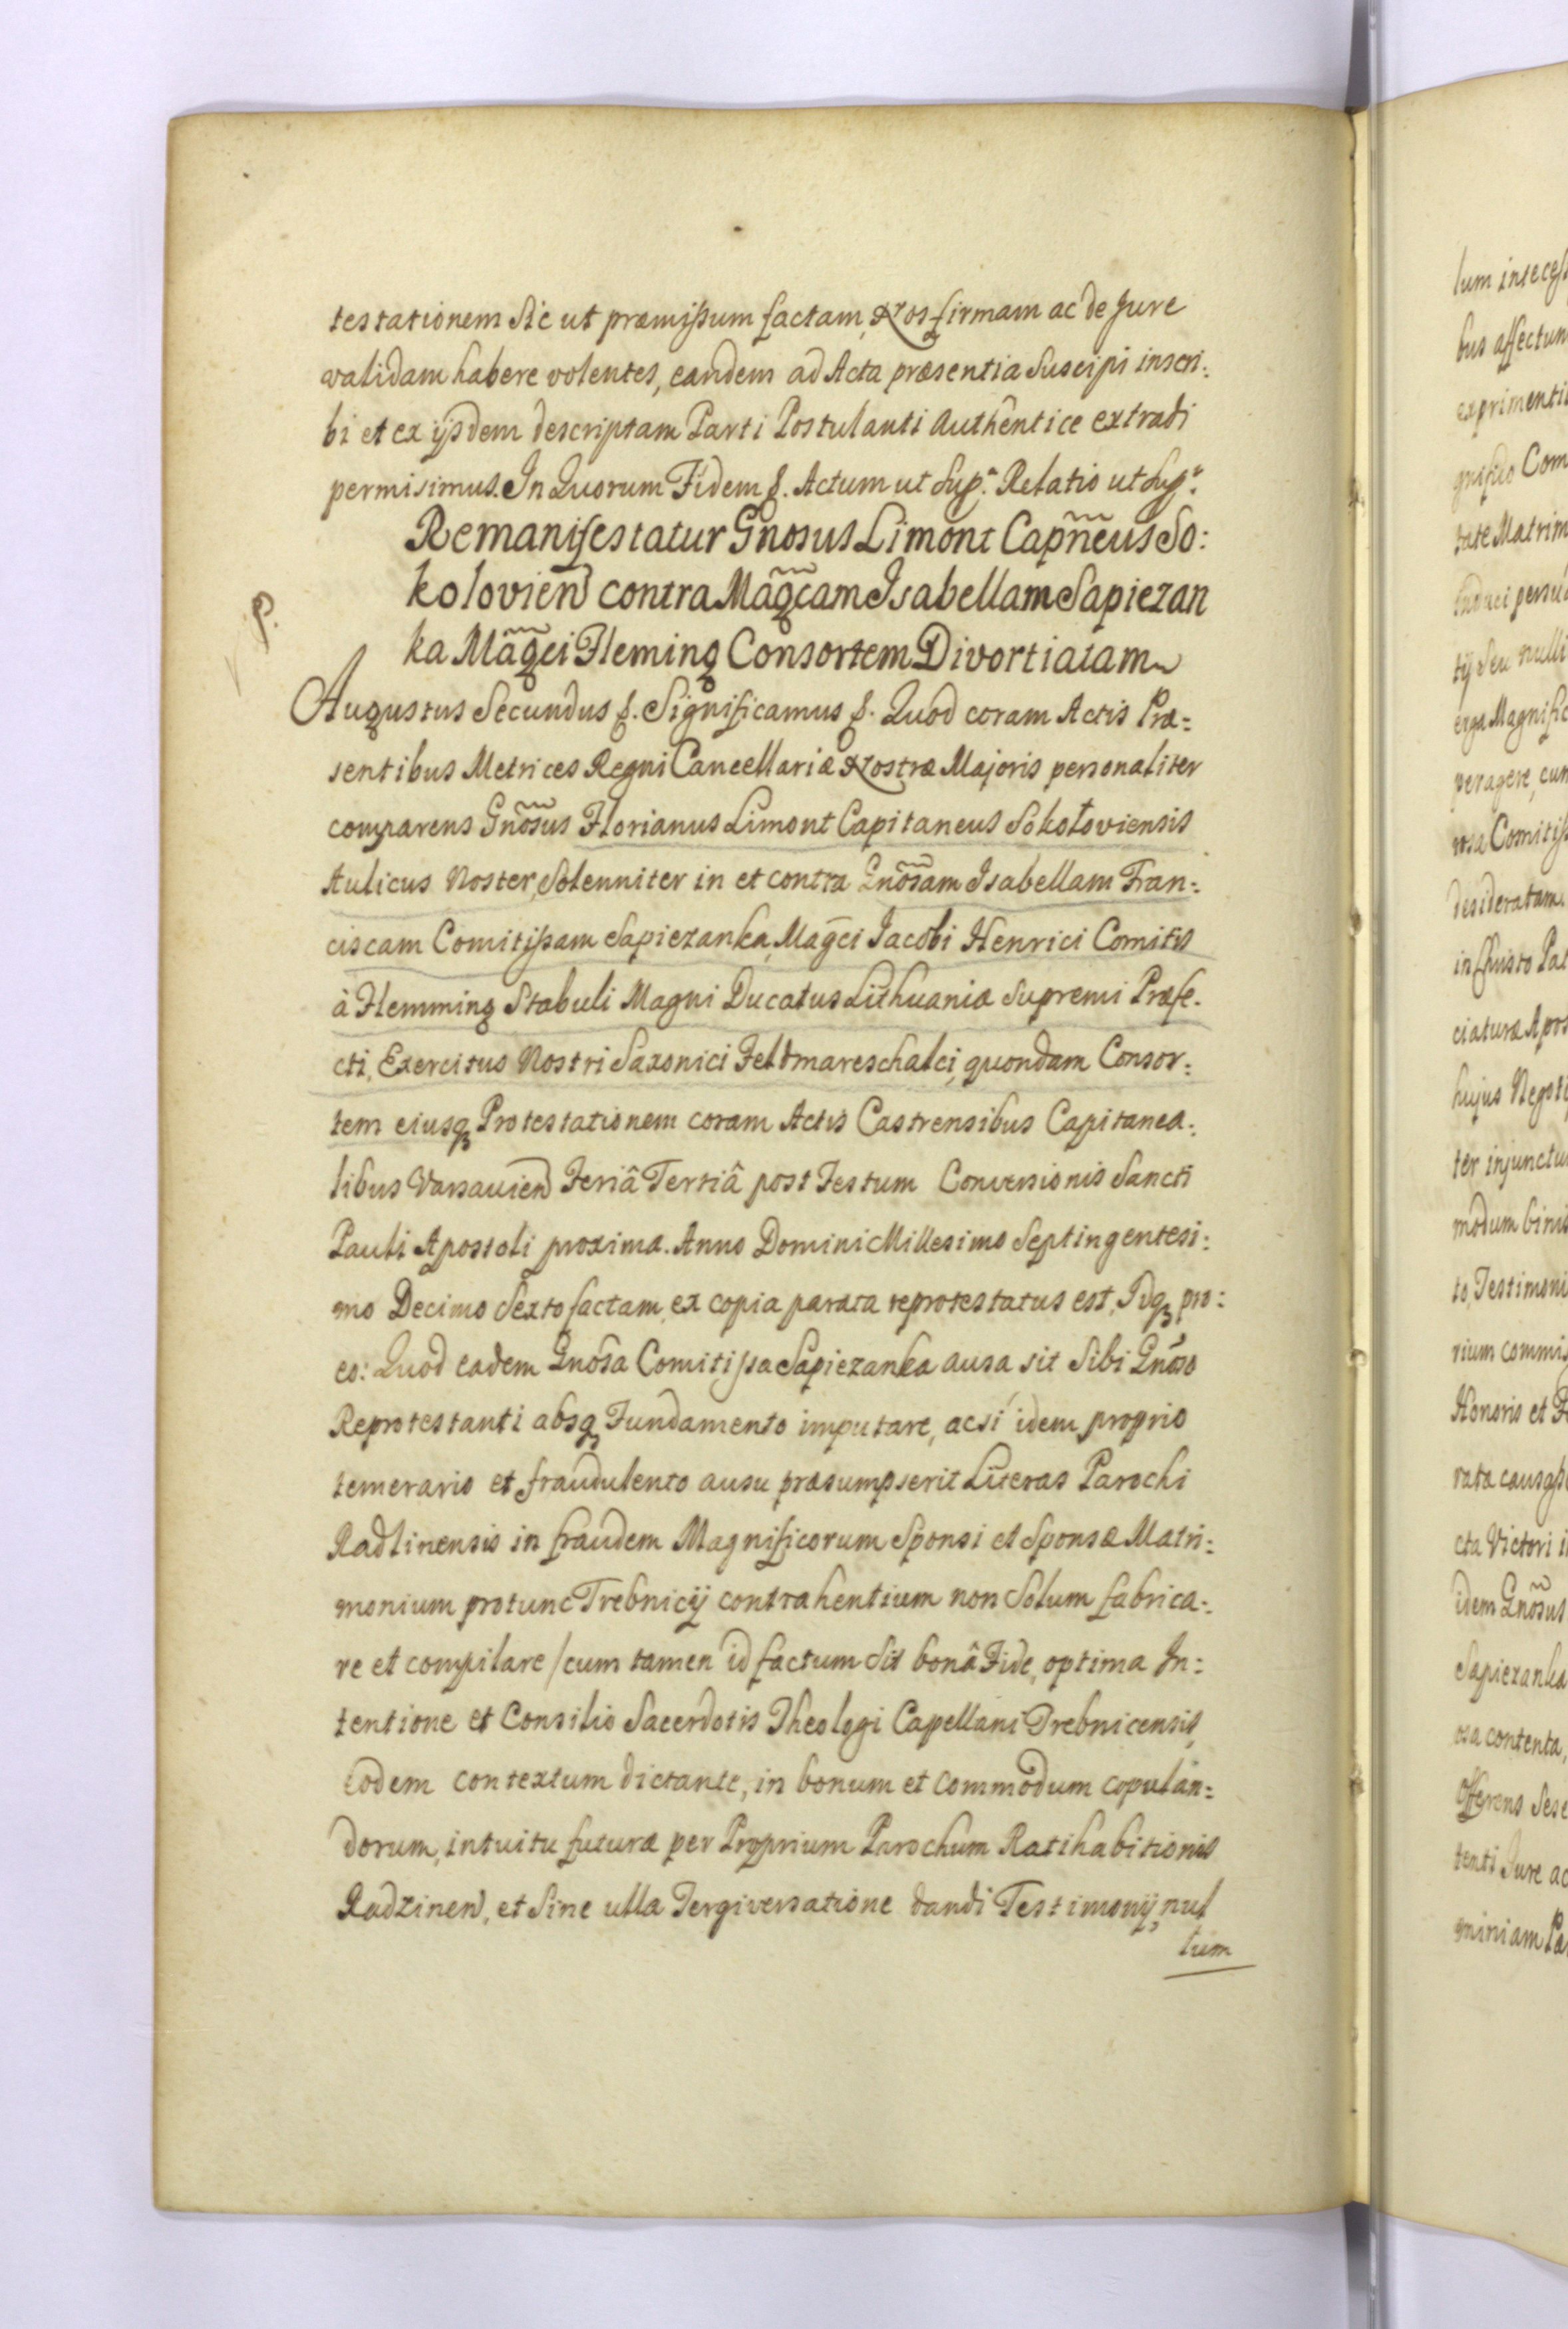 testationem Sic ut præmissum factam, Nos firmam ac de Jure
validam habere volentes, eandem ad Acta præsentia Suscipi inscri:
bi et ex ijsdem descriptam Parti Postulanti Authentice extradi
permisimus. In Quorum Fidem &. Actum ut Sup.ª Relatio ut Sup.ª
Remanifestatur Gnosus Limont Capñeus So:
kolovien contra Mãgcam Isabellam Sapiezan
ka Mãgci Fleming Consortem Divortiatam
P.
Augustus Secundus &. Significamus &. Quod coram Actis Præ=
sentibus Metrices Regni Cancellariæ Nostræ Majoris personaliter
comparens Gnõsus Florianus Limont Capitaneus Sokołoviensis
Aulicus Noster, Solenniter in et contra Gnõsam Isabellam Fran=
ciscam Comitissam Sapiezanka, Mag̃ci Jacobi Henrici Comitis
à Flemming Stabuli Magni Ducatus Lithuaniæ Supremi Præfe.
cti, Exercitus Nostri Saxonici Feldmareschalci, quondam Consor:
tem eiusq Protestationem coram Actis Castrensibus Capitanea:
libus Varsavien Feriâ Tertiâ post Festum Conversionis Sancti
Pauli Apostoli proxima. Anno Domini Millesimo Septingentesi:
mo Decimo Sexto factam, ex copia parata reprotestatus est, Idq pro:
eo: Quod eadem Gnosa Comitissa Sapiezanka ausa sit Sibi Gnõso
Reprotestanti absq Fundamento imputare, acsi idem proprio
temerario et fraudulento ausu præsumpserit Literas Parochi
Radlinensis in fraudem Magnificorum Sponsi et Sponsæ Matri:
monium protunc Trebnicij contrahentium non Solum fabrica:
re et compilare / cum tamen id factum Sit bonâ Fide, optima In:
tentione et Consilio Sacerdotis Theologi Capellani Trebnicensis,
eodem contextum dictante, in bonum et commodum copulan=
dorum, intuitu futuræ per Proprium Parochum Ratihabitionis
Radzinen, et Sine ulla Tergiversatione dandi Testimonij, nul
lum
bus affectum
exprimenti
Com
tate Matrim
tij Seu nulli
erga Magnific
peragere, cum
rosa Comitiss
desideratam.
in Christo Pat
ciaturæ Apos
hujus Negoti
ter injunctu
modum binis
to, Testimoni
rium commis
Honoris et F
rata
cta Victori i
idem Gnõsus
Sapiezanka
osa contenta,
Offerens Sese
tenti Jure ac
miniam Pa